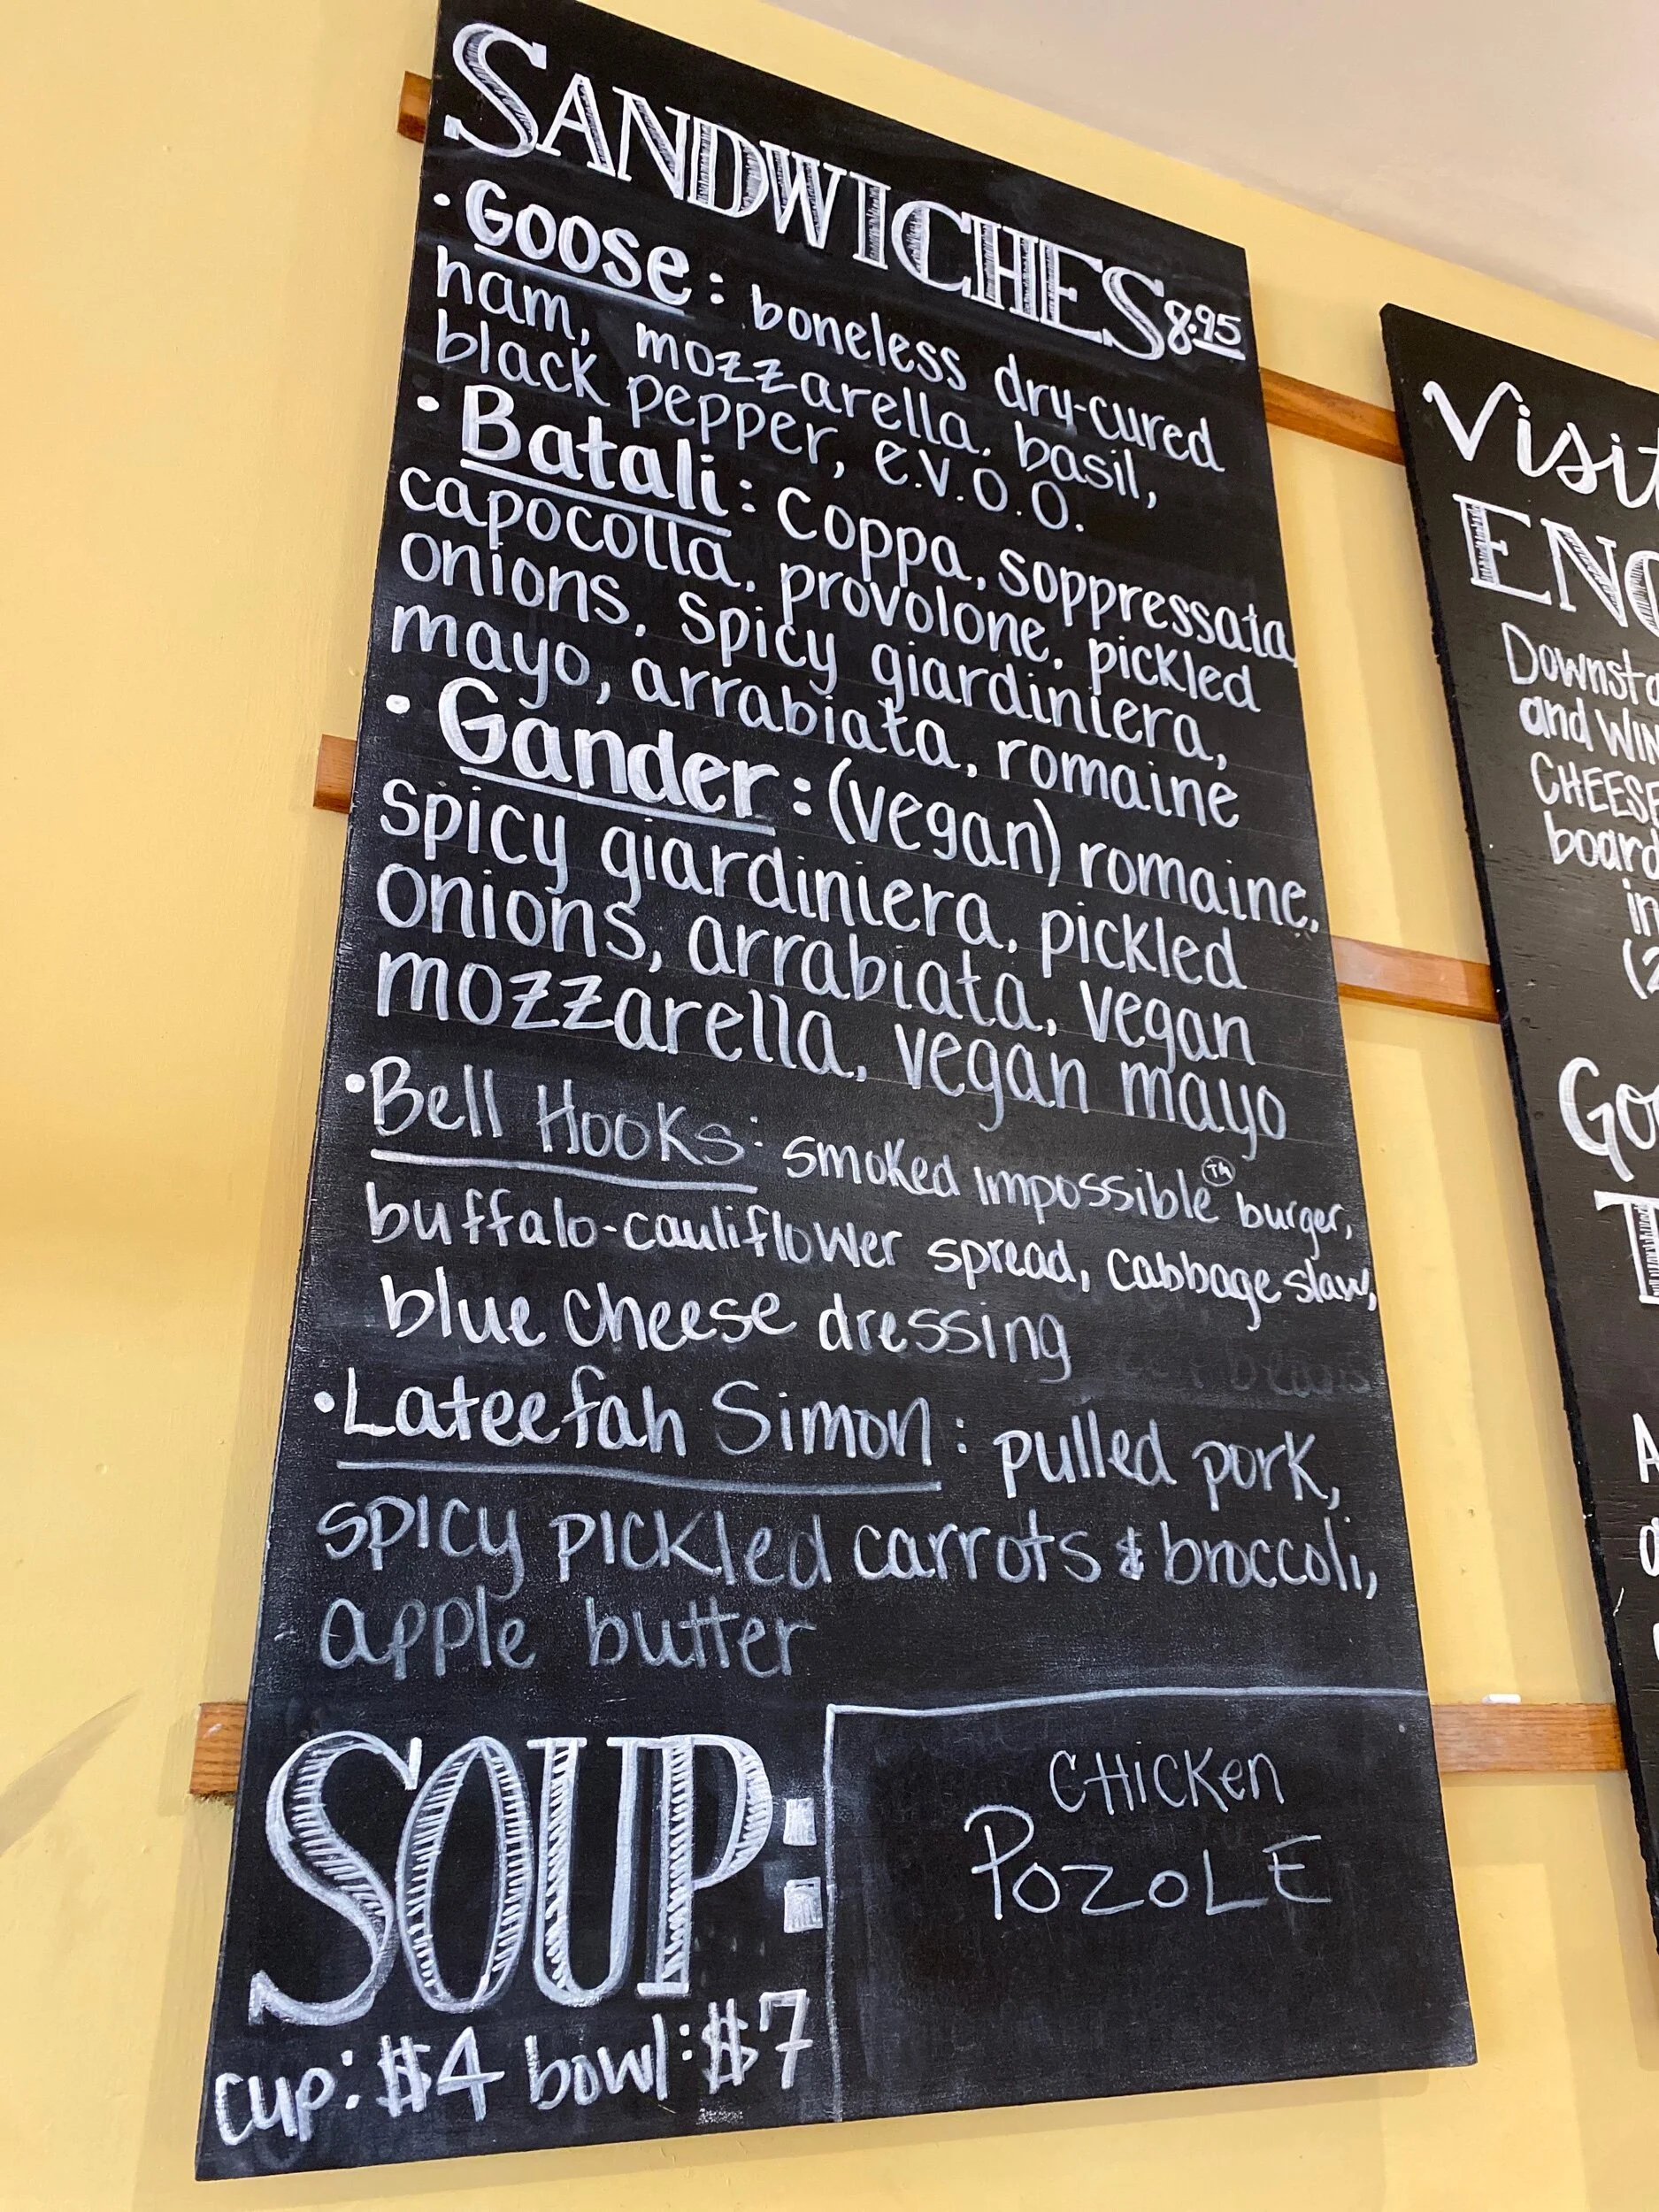 SANDWICHES 8.95
• Goose: boneless dry-cured
ham, mozzarella, basil,
black pepper, e.v.o.o.
• Batali: coppa, soppressata,
capocolla, provolone, pickled
onions, spicy giardiniera,
mayo, arrabiata, romaine
• Gander: (vegan) romaine,
spicy giardiniera, pickled
onions, arrabiata, vegan
mozzarella, vegan mayo
• Bell Hooks: smoked Impossible™ burger,
buffalo-cauliflower spread, cabbage slaw,
blue cheese dressing
• Lateefah Simon: pulled pork,
spicy pickled carrots & broccoli,
apple butter
SOUP:
cup: $4 bowl: $7
CHICKEN
POZOLE
Visit
and
CHEESE